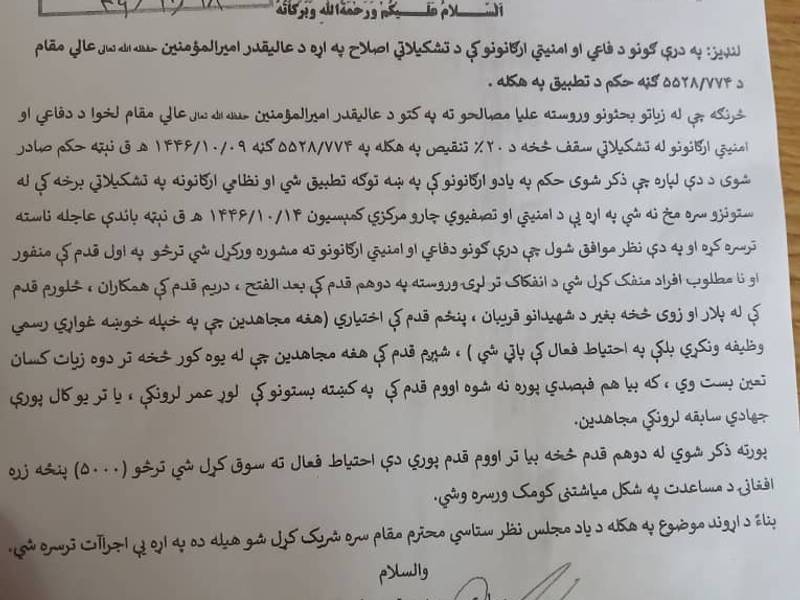 ۱۸ / ۱۰ / ۴۶
السَّلامُ عَلَيكُم وَرَحْمَةُاللهِ وَبَرَكَاتُهُ
لنډیز: په درې ګونو د فاعي او امنیتي ارګانونو کې د تشکیلاتي اصلاح په اړه د عالیقدر امیرالمؤمنین حفظه الله تعالی عالي مقام
د ۵۵۲۸/۷۷۴ ګڼه حکم د تطبیق په هکله .
څرنګه چې له زیاتو بحثونو وروسته علیا مصالحو ته په کتو د عالیقدر امیرالمؤمنین حفظه الله تعالی عالي مقام لخوا د دفاعي او
امنیتي ارګانونو له تشکیلاتي سقف څخه د ۲۰٪ تنقیص په هکله په ۵۵۲۸/۷۷۴ ګڼه ۱۴۴۶/۱۰/۰۹ هـ ق نېټه حکم صادر
شوی د دې لپاره چې ذکر شوی حکم په یادو ارګانونو کې په ښه توګه تطبیق شي او نظامي ارګانونه په تشکیلاتي برخه کې له
ستونزو سره مخ نه شي په اړه یې د امنیتي او تصفیوي چارو مرکزي کمېسیون ۱۴۴۶/۱۰/۱۴ هـ ق نېټه باندې عاجله ناسته
ترسره کړه او په دې نظر موافق شول چې درې ګونو دفاعي او امنیتي ارګانونو ته مشوره ورکړل شي ترڅو په اول قدم کې منفور
او نا مطلوب افراد منفک کړل شي د انفکاک تر لړۍ وروسته په دوهم قدم کې بعد الفتح ، دریم قدم کې همکاران ، څلورم قدم
کې له پلار او زوی څخه بغیر د شهیدانو قریبان ، پنځم قدم کې اختیاري (هغه مجاهدین چې په خپله خوښه غواړي رسمي
وظیفه ونکړي بلکې په احتیاط فعال کې پاتې شي ) ، شپږم قدم کې هغه مجاهدین چې له یوه کور څخه تر دوه زیات کسان
تعین بست وي ، که بیا هم فېصدي پوره نه شوه اووم قدم کې په کښته بستونو کې لوړ عمر لرونکي ، یا تر یو کال پورې
جهادي سابقه لرونکي مجاهدین.
پورته ذکر شوي له دوهم قدم څخه بیا تر اووم قدم پورې دې احتیاط فعال ته سوق کړل شي ترڅو (۵۰۰۰) پنځه زره
افغانۍ د مساعدت په شکل میاشتنی کومک ورسره وشي.
بناءً د اړوند موضوع په هکله د یاد مجلس نظر ستاسې محترم مقام سره شریک کړل شو هیله ده په اړه یې اجراآت ترسره شي.
والسلام